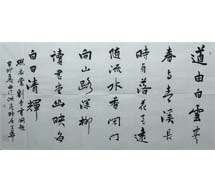 道由白雲盡
春与青溪長
時有落花至遠
随流水香閑門
向山路深柳
讀書堂幽映每
白日清輝
照衣裳